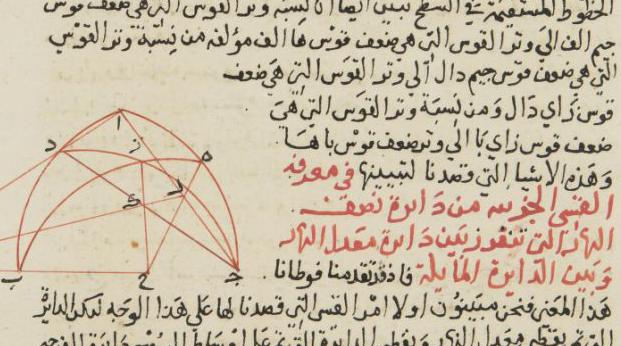 الخطوط المستقيمة في السطح تبين ايضا ان نسبة وتر القوس التي هي ضعف قوس
جيم الف الي وتر القوس التي هي ضعف قوس ها الف مؤلفه من نسبة وتر القوس
التي هي ضعف قوس جيم دال الي وتر القوس التي هي ضعف
قوس زاي دال ومن نسبة وتر القوس التي هي
ضعف قوس زاي با الي وتر ضعف قوس با ها
وهذه الاشيا التي قصدنا لتبيينها في معرفه
القسي الجزييه من دايرة نصف
النهار التي تقع فيما بين دايرة معدل النهار
وبين الدايرة المايلة فاذ قد تقدمنا فوطانا
هذا المعنى فنحن مبينون اولا امر القسي التي قصدنا لها على هذا الوجه لتكن الدايرة
التي تمر بقطبي معدل النهار وبقطبي الدايرة التي تمر على اوساط البروج دايرة
ا
د
ز
ه
ط
ب
ح
ج